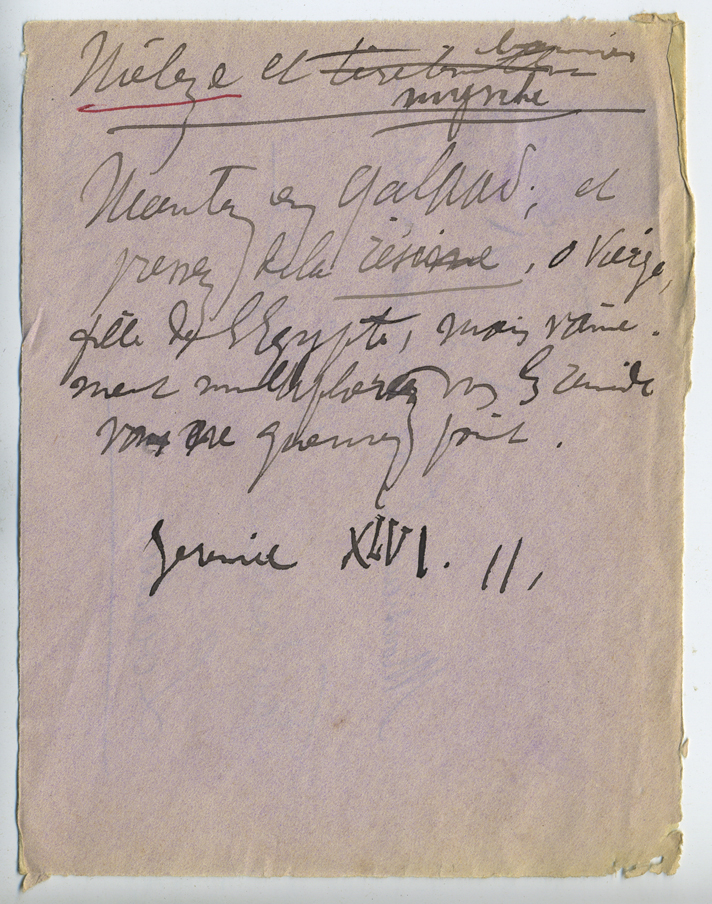 Mélèze et baumier
myrrhe
Montez en Galaad, et
prenez de la résine, o Vierge,
fille de l'Egypte, mais vaine-
ment multipliez vous les remède
vous ne guerirez point.
Jeremie XLVI. 11,